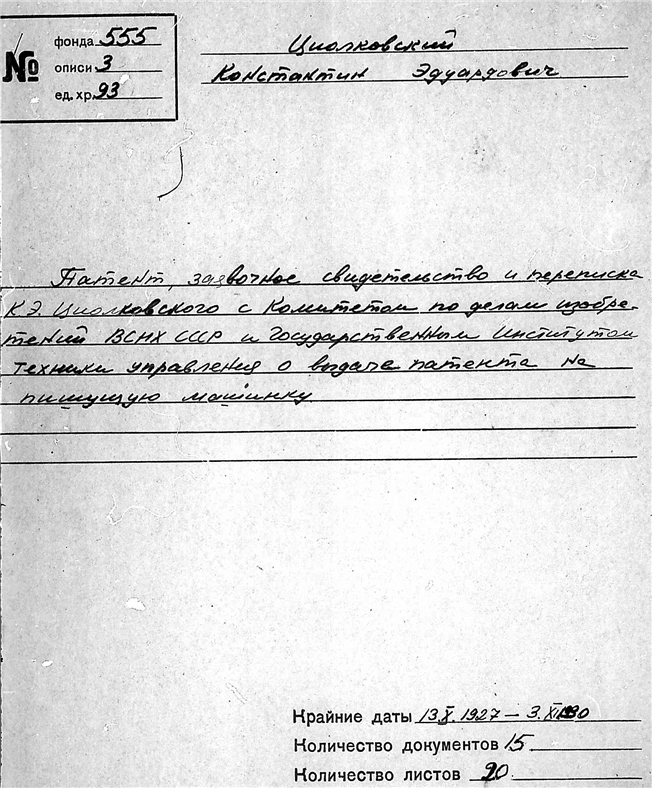 № фонда 555
описи 3
ед. хр. 93
Циолковский
Константин Эдуардович
Патент, заявочное свидетельство и переписка
К.Э. Циолковского с Комитетом по делам изобре-
тений ВСНХ СССР и Государственным Институтом
техники управления о выдаче патента на
пишущую машинку
Крайние даты 13.X.1927 – 3.XI.1930
Количество документов 15
Количество листов 20